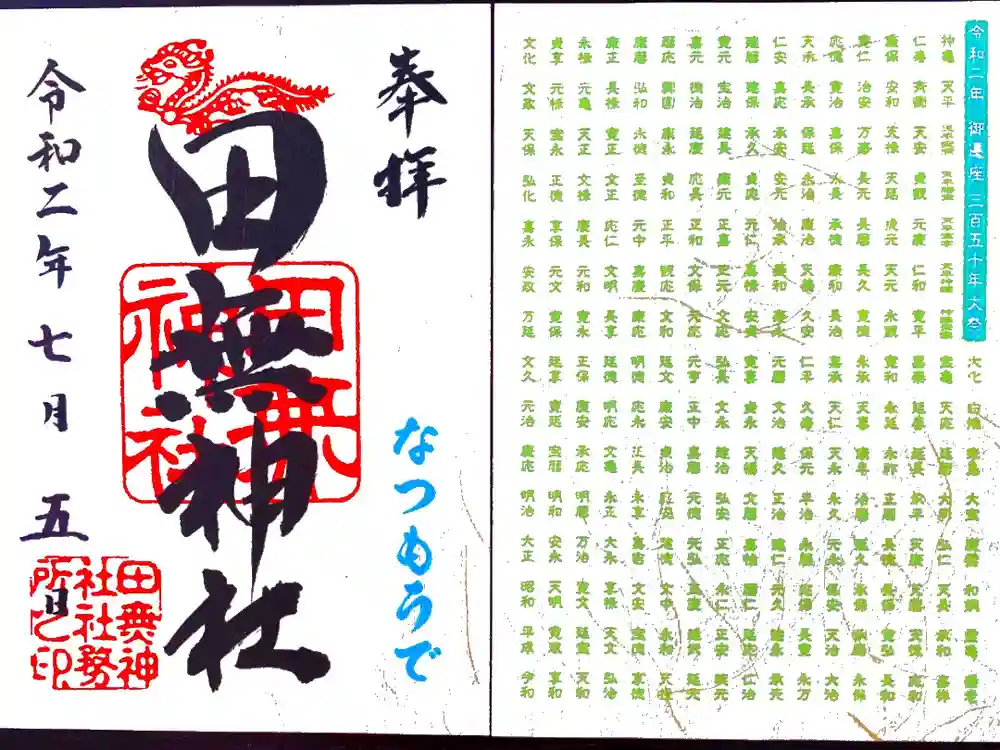 令和二年 御遷座 三百五十年 大祭
大化 白雉 朱鳥 大宝 慶雲 和銅 霊亀 養老
神亀 天平 天平感宝 天平勝宝 天平宝字 天平神護 神護景雲 宝亀 天応 延暦 大同 弘仁 天長 承和 嘉祥
仁寿 斉衡 天安 貞観 元慶 仁和 寛平 昌泰 延喜 延長 承平 天慶 天暦 天徳 応和
康保 安和 天禄 天延 貞元 天元 永観 寛和 永延 永祚 正暦 長徳 長保 寛弘 長和
寛仁 治安 万寿 長元 長暦 長久 寛徳 永承 天喜 康平 治暦 延久 承保 承暦 永保
応徳 寛治 嘉保 永長 承徳 康和 長治 嘉承 天仁 天永 永久 元永 保安 天治 大治
天承 長承 保延 永治 康治 天養 久安 仁平 久寿 保元 平治 永暦 応保 長寛 永万
仁安 嘉応 承安 安元 治承 養和 寿永 元暦 文治 建久 正治 建仁 元久 建永 承元
建暦 建保 承久 貞応 元仁 嘉禄 安貞 寛喜 貞永 天福 文暦 嘉禎 暦仁 延応 仁治
寛元 宝治 建長 康元 正嘉 正元 文応 弘長 文永 建治 弘安 正応 永仁 正安 乾元
嘉元 徳治 延慶 応長 正和 文保 元応 元亨 正中 嘉暦 元徳 元弘 正慶 建武 延元
暦応 興国 康永 貞和 正平 観応 文和 延文 康安 貞治 応安 建徳 文中 永和 天授
康暦 弘和 永徳 至徳 元中 嘉慶 康応 明徳 応永 正長 永享 嘉吉 文安 宝徳 享徳
康正 長禄 寛正 文正 応仁 文明 長享 延徳 明応 文亀 永正 大永 享禄 天文 弘治
永禄 元亀 天正 文禄 慶長 元和 寛永 正保 慶安 承応 明暦 万治 寛文 延宝 天和
貞享 元禄 宝永 正徳 享保 元文 寛保 延享 寛延 宝暦 明和 安永 天明 寛政 享和
文化 文政 天保 弘化 嘉永 安政 万延 文久 元治 慶応 明治 大正 昭和 平成 令和
奉拝
なつもうで
田無神社
田無神社
令和二年 七月 五日
田無神社社務所之印